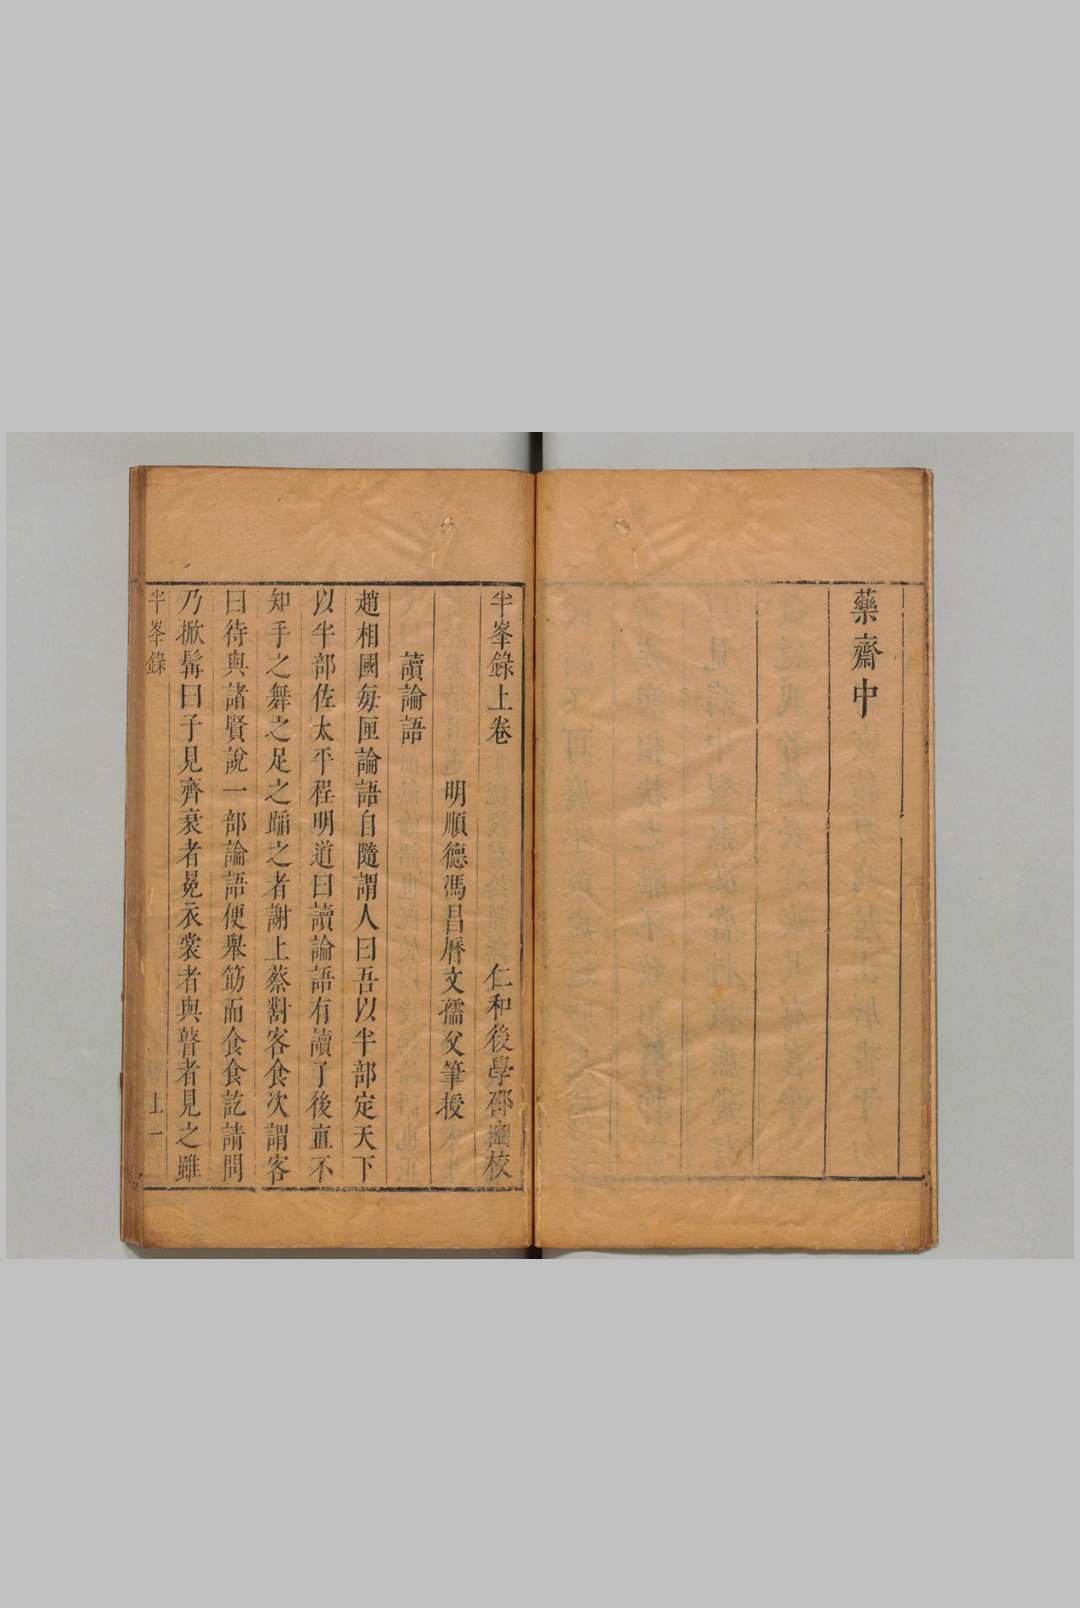 藥齋中
半峯錄上卷
仁和後學邵 校
明順德馮昌曆文孺父筆授
讀論語
趙相國每匣論語自隨謂人曰吾以半部定天下
以半部佐太平程明道曰讀論語有讀了後直不
知手之舞之足之蹈之者謝上蔡對客食次謂客
曰待與諸賢說一部論語便舉筯而食食訖請問
乃掀髯曰子見齊衰者冕衣裳者與瞽者見之雖
半峯錄
上一